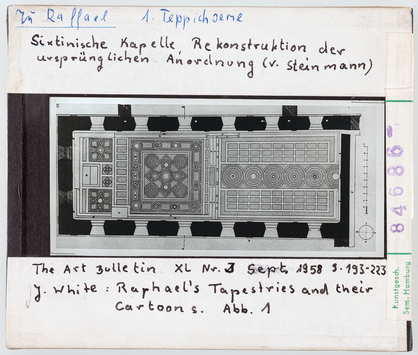 Zu Raffael 1. Teppichserie
Sixtinische Kapelle, Rekonstruktion der
ursprünglichen Anordnung (v. Steinmann)
84686-
The Art Bulletin XL Nr. 3 Sept. 1958 S. 193-223
J. White: Raphael's Tapestries and their
Cartoons. Abb. 1
Kunstgesch.
Sem. Hamburg